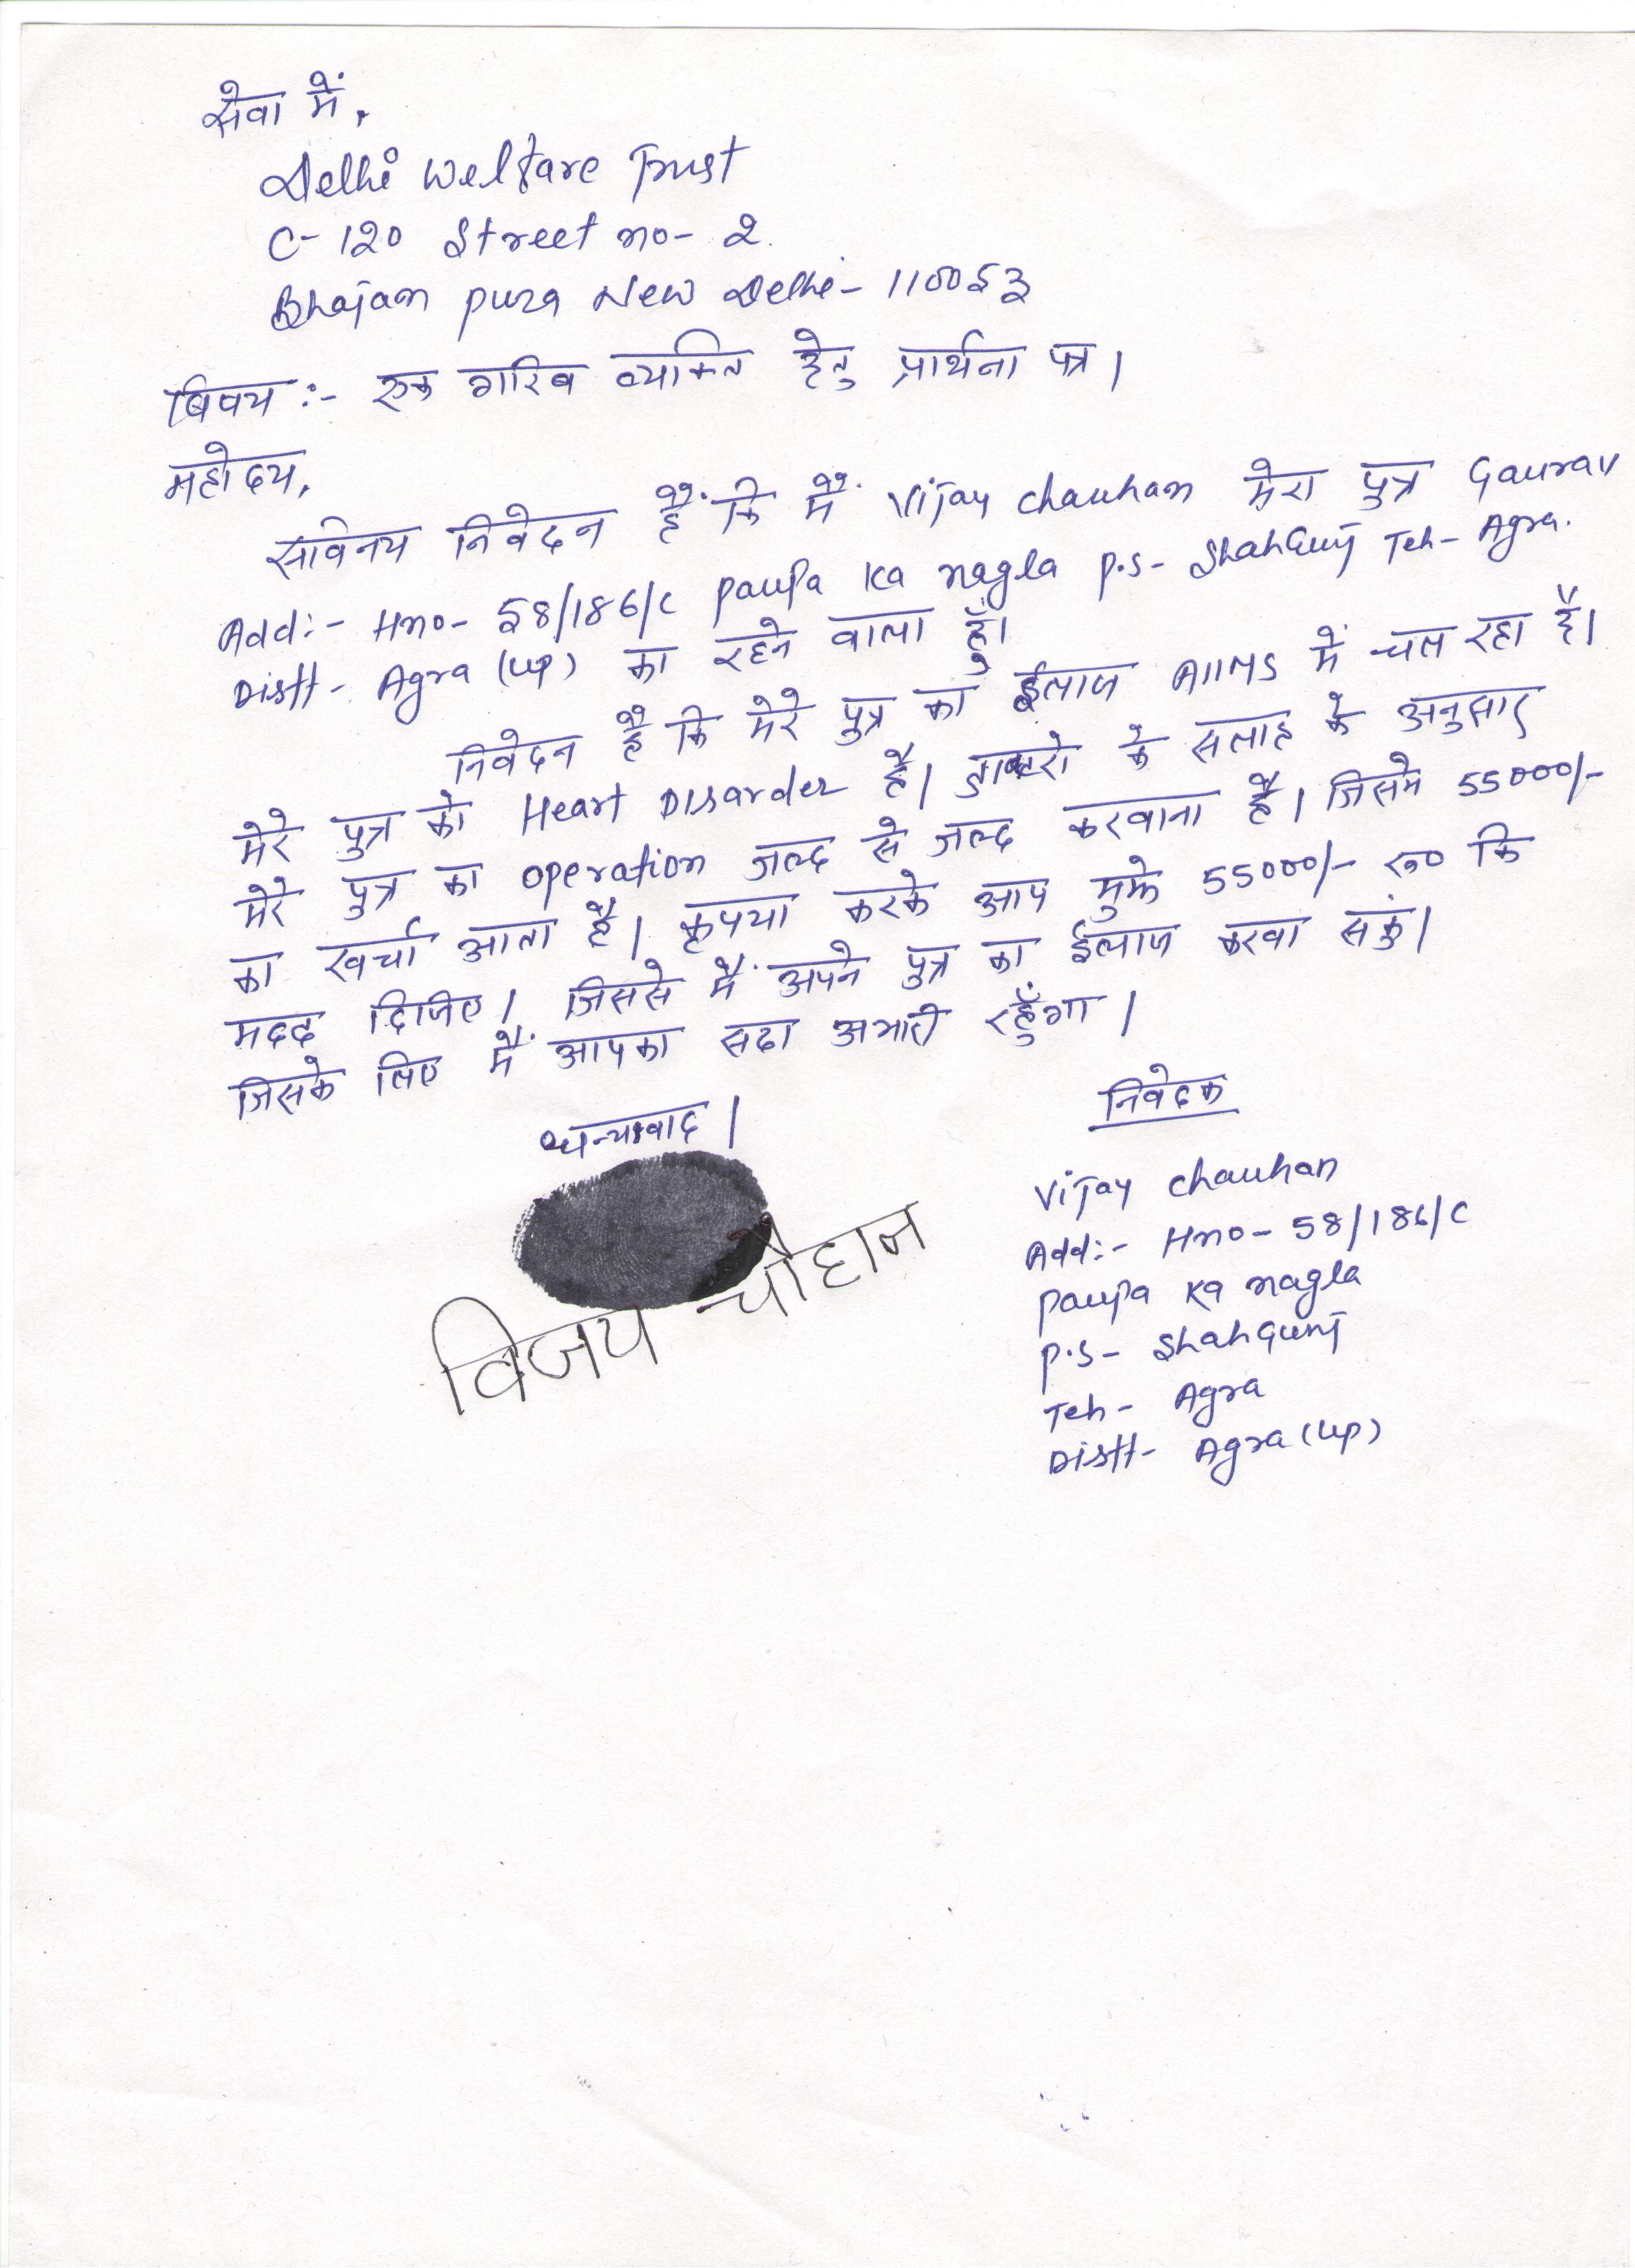 सेवा में,
Delhi Welfare Trust
C-120 Street no- 2.
Bhajan pura New Delhi- 110053
बिषय :- एक गरिब व्यक्ति हेतु प्रार्थना पत्र।
महोदय,
सविनय निवेदन हैं कि मैं Vijay Chauhan मेरा पुत्र Gaurav
Add:- Hno- 58/186/C paupa Ka nagla P.S- ShahGunj Teh- Agra.
Distt- Agra (up) का रहने वाला हूँ।
निवेदन है कि मेरे पुत्र का ईलाज AIIMS में चल रहा है।
मेरे पुत्र को Heart Disarder है। डाक्टरो के सलाह के अनुसार
मेरे पुत्र का operation जल्द से जल्द करवाना है। जिसमे 55000/-
का खर्चा आता है। कृपया करके आप मुझे 55000/- रू० कि
मदद दिजिए। जिससे मैं अपने पुत्र का ईलाज करवा सकुं।
जिसके लिए मैं आपका सदा अभारी रहुँगा।
धन्यावाद।
विजय चौहान
निवेदक
Vijay Chauhan
Add:- Hno- 58/186/C
paupa Ka nagla
P.S- ShahGunj
Teh- Agra
Distt- Agra (up)